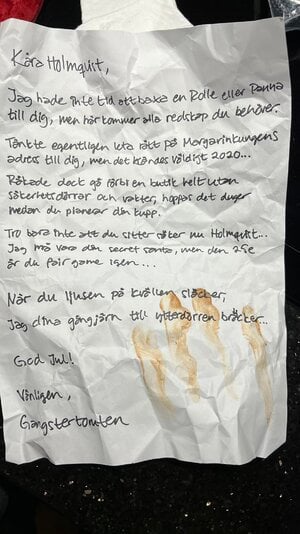 Kära Holmquist,
Jag hade inte tid att baxa en Rolle eller Panna
till dig, men här kommer alla redskap du behöver.
Tänkte egentligen leta rätt på Margarinkungens
adress till dig, men det kändes väldigt 2020...
Råkade dock gå förbi en butik helt utan
säkerhetsdörrar och vakter, hoppas det duger
medan du planerar din kupp.
Tro bara inte att du sitter säker nu Holmquist...
Jag må vara din secret santa, men den 25e
är du fair game igen...
När du ljusen på kvällen släcker,
Jag dina gångjärn till ytterdörren bräcker...
God Jul!
Vänligen,
Gangstertomten